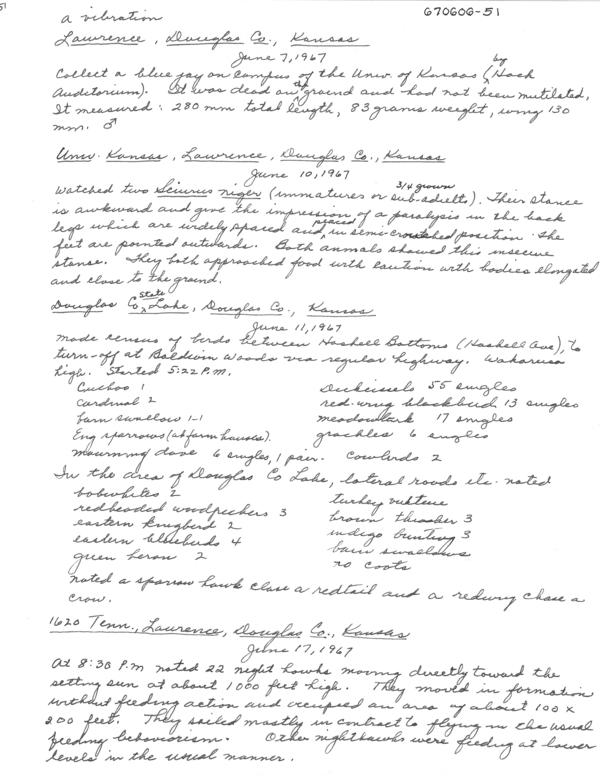 51
670606-51
a vibration
Lawrence, Douglas Co., Kansas
June 7, 1967
Collect a blue jay on campus of the Univ. of Kansas (by Hoch
Auditorium). It was dead on the ground and had not been mutilated.
It measured: 280 mm total length, 83 grams weight, wing 130
mm. ♂
Univ. Kansas, Lawrence, Douglas Co., Kansas
June 10, 1967
Watched two Sciurus niger (immatures or 3/4 grown sub-adults). Their stance
is awkward and give the impression of a paralysis in the back
legs which are widely spaced and placed in semicrouched position. The
feet are pointed outwards. Both animals showed this insecure
stance. They both approached food with caution with bodies elongated
and close to the ground.
Douglas Co. State Lake, Douglas Co., Kansas
June 11, 1967
Made census of birds between Haskell Bottoms (Haskell Ave), to
turn-off at Baldwin Woods via regular highway. Wakarusa
high. Started 5:22 P.M.
Cuckoo 1
cardinal 2
barn swallow 1-1
Eng sparrows (at farm houses).
mourning dove 6 singles, 1 pair.
Dickcissels 55 singles
red-wing blackbird 13 singles
meadowlark 17 singles
grackles 6 singles
cowbirds 2
In the area of Douglas Co Lake, lateral roads etc. noted
bobwhites 2
redheaded woodpeckers 3
eastern kingbird 2
eastern bluebirds 4
green heron 2
turkey vulture
brown thrasher 3
indigo bunting 3
barn swallows
no coots
Noted a sparrow hawk chase a redtail and a redwing chase a
crow.
1620 Tenn., Lawrence, Douglas Co., Kansas
June 17, 1967
At 8:30 P.M noted 22 night hawks moving directly toward the
setting sun at about 1000 feet high. They moved in formation
without feeding action and occupied an area of about 100 x
200 feet. They sailed mostly in contrast to flying in the usual
feeding behaviorism. Other nighthawks were feeding at lower
levels in the usual manner.